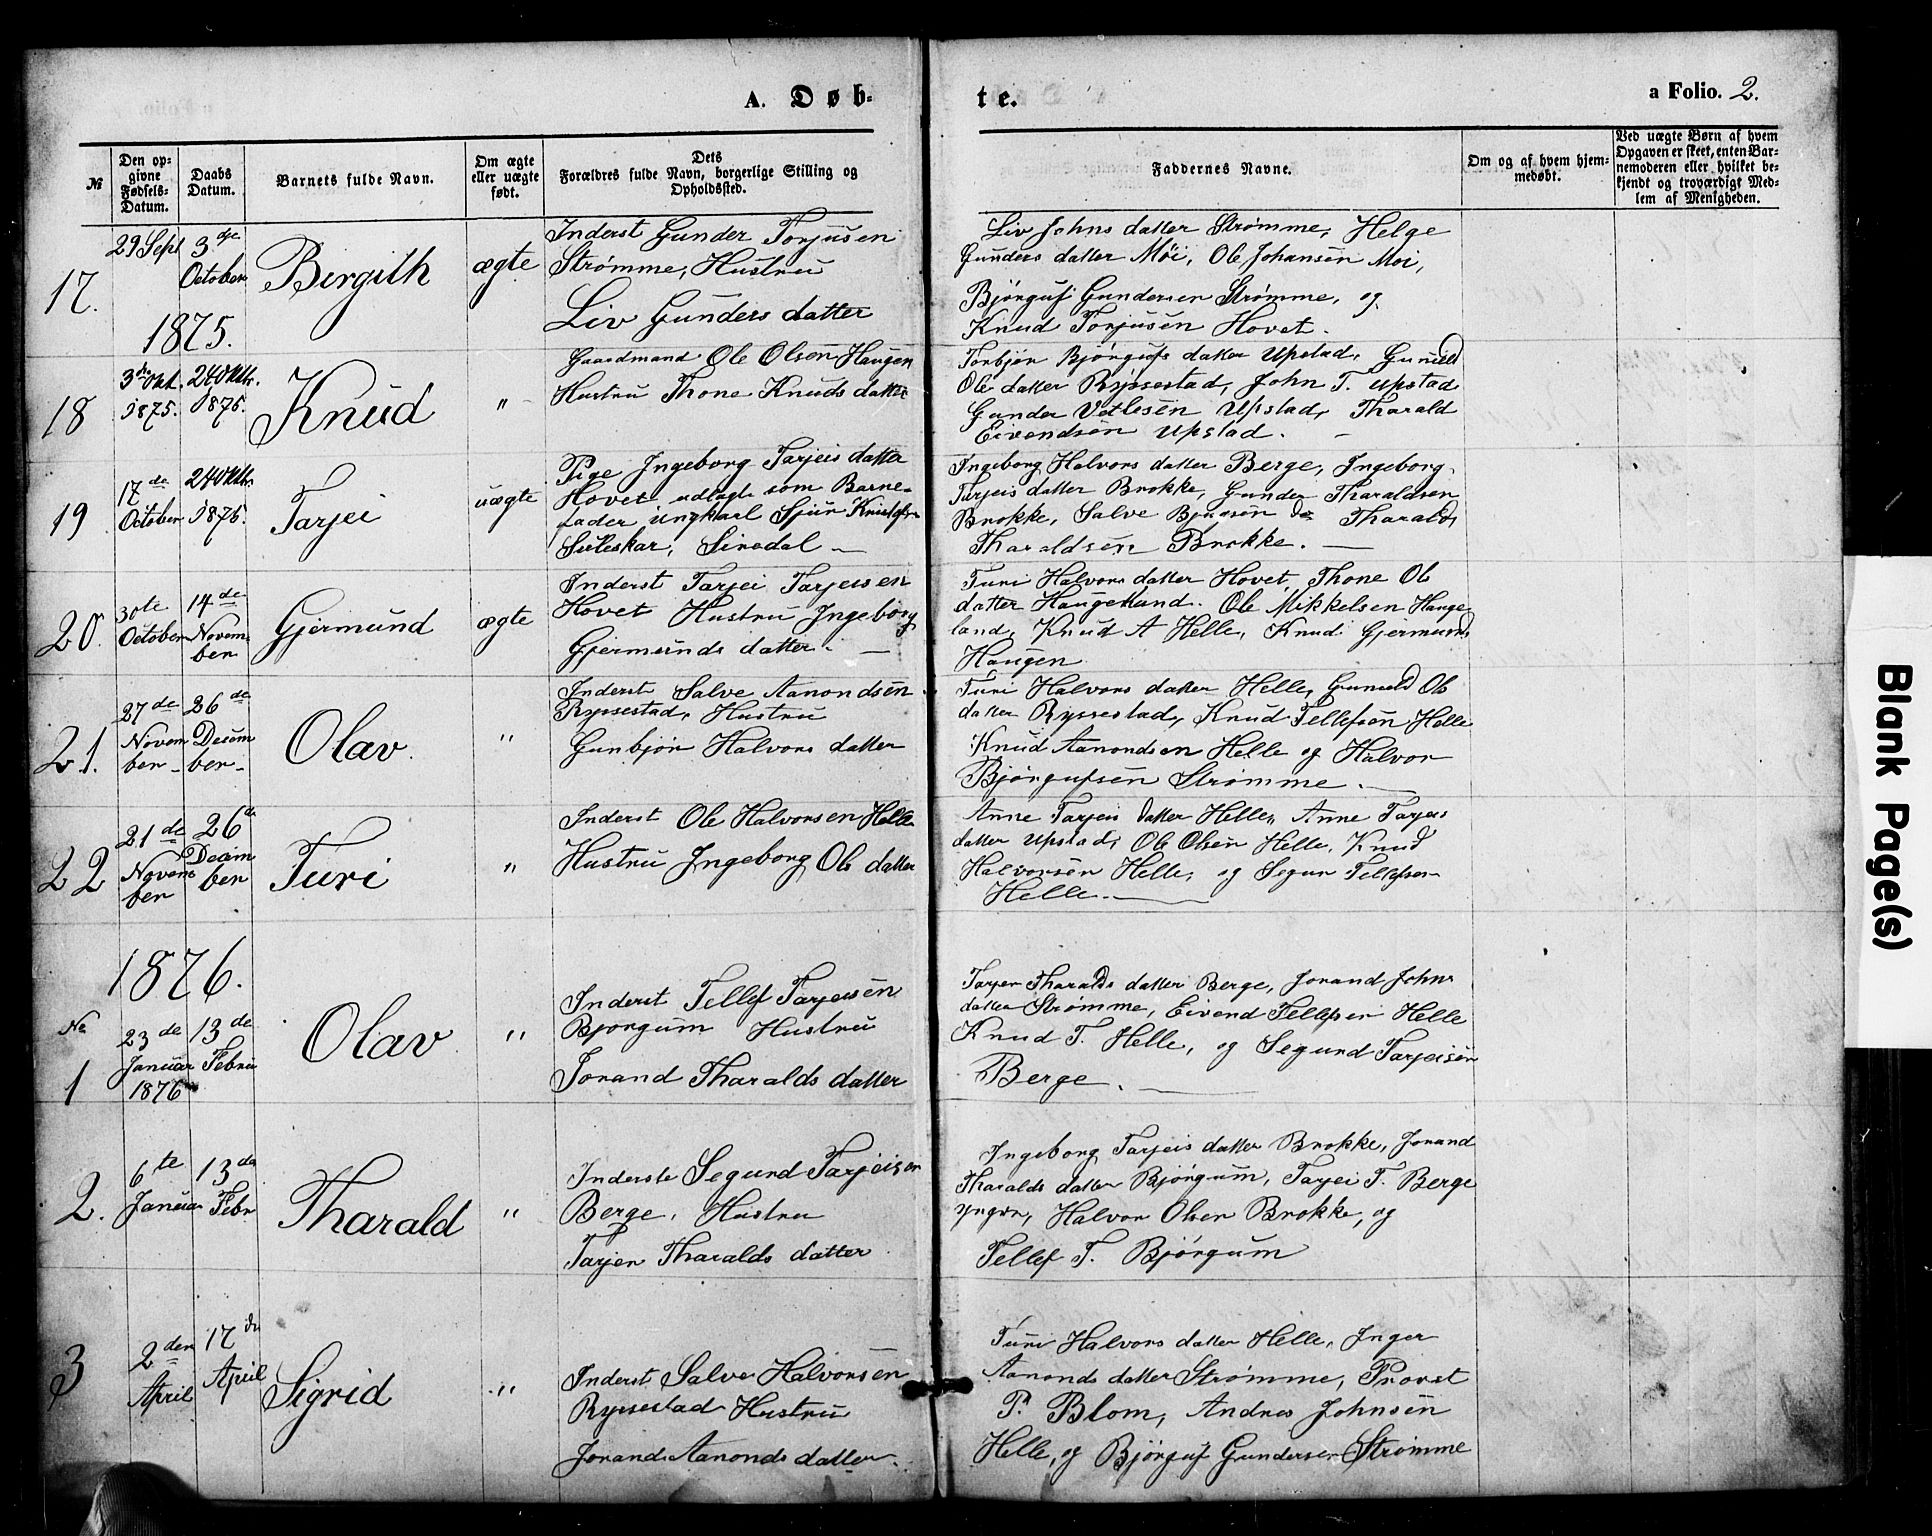 A. Døb-
te.
a Folio. 2.
№
Den op-
givne
Fødsels-
Datum.
Daabs
Datum.
Barnets fulde Navn.
Om ægte
eller uægte
født.
Dets
Forældres fulde Navn, borgerlige Stilling og
Opholdssted.
Faddernes Navne.
Om og af hvem hjem-
medøbt.
Ved uægte Børn af hvem
Opgaven er skeet, enten Bar-
nemoderen eller hvilket be-
kjendt og troværdigt Med-
lem af Menigheden.
17.
29 Sept
1875.
3 dje
October
Bergith
ægte
Inderst Gunder Torjusen
Strømme, Hustru
Liv Gunders datter
Liv Johns datter Strømme, Helge
Gunders datter Möi, Ole Johansen Moi,
Bjørguf Gundersen Strømme, og
Knud Torjusen Hovet.
18
3die Okt.
1875.
24 Oktb.
1875.
Knud
"
Gaardmand Ole Olsen Haugen
Hustru Thone Knuds datter
Torbjør Bjørgufs datter Upstad, Gunild
Ols datter Ryssestad, John T. Upstad
Gunder Vetlesen Upstad, Tharald
Eivendsön Upstad. –
19
17 de
October
24 Oktb.
1875.
Tarjei
uægte
Pige Ingeborg Tarjeis datter
Hovet udlagte som Barne-
fader ungkarl Sjur
Suleskar, Siredal –
Ingeborg Halvors datter Berge, Ingeborg
Tarjeis datter Brokke, Gunder Tharaldsen
Brokke, Salve
Tharald
Tharaldsen Brokke. –
20.
30te
October
14 de
Novem-
ber
Gjermund
ægte
Inderst Tarjei Tarjeisen
Hovet Hustru Ingeborg
Gjermunds datter. –
Turi Halvors datter Hovet, Thone Ols
datter Haugeland. Ole Mikkelsen Hauge-
land, Knud A Helle, Knud Gjermunds
Haugen
21.
27 de
Novem
ber –
26 de
Desem
ber –
Olav.
"
Inderst Salve Aanondsen
Ryssestad, Hustru
Gunbjør Halvors datter
Turi Halvors datter Helle, Gunild Ols
datter Ryssestad, Knud Tellefsön Helle
Knud Aanondsen Helle og Halvor
Bjørgufsen Strømme. –
22
21 de
Novem
ber
26 de
Decem
ber
Turi
"
Inderst Ole Halvorsen Helle
Hustru Ingeborg Ols datter
Anne Tarjeis datter Helle, Anne Tarjeis
datter Upstad, Ole Olsen Helle, Knud
Halvorsen Helle, og Segur Tellefsen
Helle. –
1876.
№
1
23 de
Januar
1876
13 de
Febru
Olav
"
Inderst Tellef Tarjeisen
Bjorgum Hustru
Jorand Tharalds datter
Tarjer Tharalds datter Berge, Jorand Johns
datter Strømme, Eivend Tellefsen Helle
Knud T. Helle, og Segund Tarjeisen
Berge. –
2.
6 te
Januar
13 de
Febr
Tharald
"
Inderste Segund Tarjeisen
Berge, Hustru
Tarjer Tharalds datter
Ingeborg Tarjeis datter Brokke, Jorand
Tharalds datter Bjørgum, Tarjei T. Berge
yngre, Halvor Olsen Brokke, og
Tellef T. Bjørgum
3
2 den
April
17 de
April
Sigrid
"
Inderst Salve Halvorsen
Ryssestad Hustru
Jorand Aanonds datter.
Turi Halvors datter Helle, Inger
Aanonds datter Strømme, Provst
P. Blom, Andres Johnsen
Helle, og Bjørguf Gundersen Strømme
Blank Page(s)